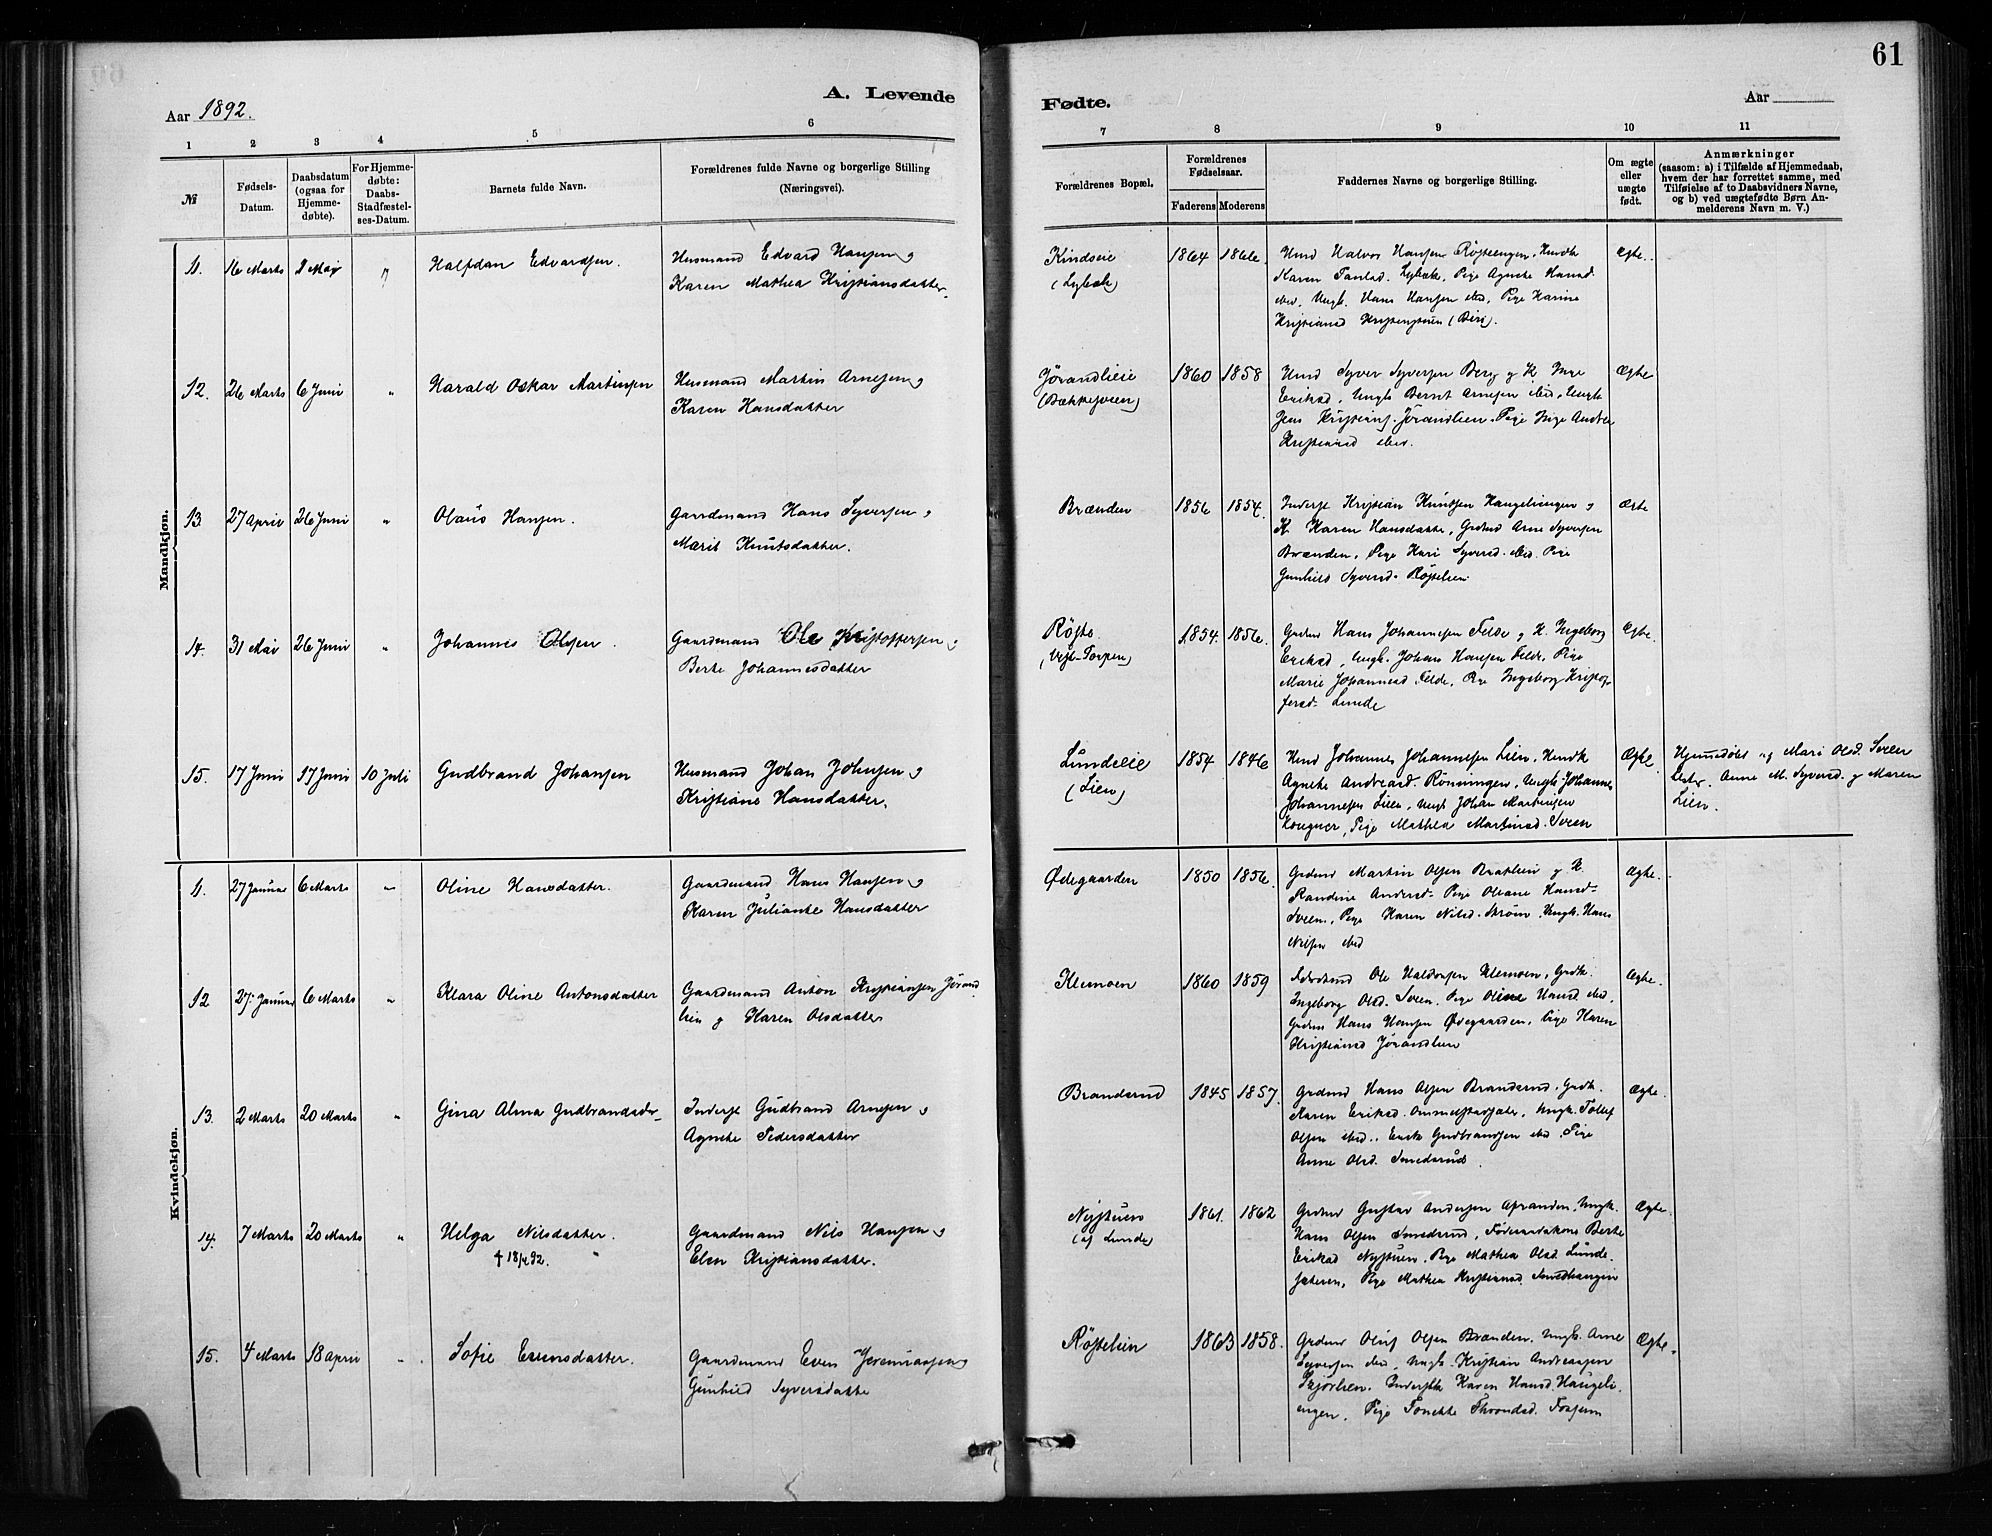 61
Aar 1892.
A. Levende
Fødte.
Aar
1 2 3 4 5 6 7 8 9 10 11
№
Fødsels-
Datum.
Daabsdatum
(ogsaa for
Hjemme-
døbte).
For Hjemme-
døbte:
Daabs-
Stadfæstel-
ses-Datum.
Barnets fulde Navn.
Forældrenes fulde Navne og borgerlige Stilling
(Næringsvei).
Forældrenes Bopæl.
Forældrenes
Fødselsaar.
Faderens Moderens
Faddernes Navne og borgerlige Stilling.
Om ægte
eller
uægte
født.
Anmærkninger
(saasom: a) i Tilfælde af Hjemmedaab,
hvem der har forrettet samme, med
Tilføielse af to Daabsvidners Navne,
og b) ved uægtefødte Børn An-
melderens Navn m. V.)
Mandkjøn.
11. 16 Marts 8 Mai " Halfdan Edvardsen.
Husmand Edvard Hansen og
Karen Mathea Kristiansdatter.
Kindseie
(Lybæk)
1864 1866.
Hmd Halvor Hansen Røisteengen, Hmdk
Karen Lybæk, Pige Agnethe Hansd.
ibid, Ungk. Hans Hansen ibid, Pige Karine
Kristiansd (Biri).
Ægte.
12. 26 Marts 6 Juni " Harald Oskar Martinsen
Husmand Martin Arnesen og
Karen Hansdatter
Jørandlieie
(Bækkesveen)
1860 1858
Hmd Syver Syversen Berg og K. Inge
Eriksd, Ungk Bernt Arnesen ibid, Ungk
Jens Kristians. Jørandlien. Pige Inge Andrea
Kristiansd ibid.
Ægte
13 27 April 26 Juni " Olaus Hansen.
Gaardmand Hans Syversen og
Marit Knutsdatter.
Brænden
1856 1854.
Inderst Kristian Knutsen Haugeliengen og
K. Karen Hansdatter, Grdmd Arne Syversen
Brænden, Pige Kari Syversd. ibid. Pige
Gunhild Syversd. Røistelien
Ægte
14. 31 Mai 26 Juni " Johannes Olsen.
Gaardmand Ole Kristoffersen og
Berte Johannesdatter
Røiste.
(Vest-Torpen)
1854. 1856.
Grdmd Hans Johannesen Felde og K. Ingeborg
Eriksd, Ungk. Johans Hansen Felde, Pige
Marie Johannesd. Felde, Pige Ingeborg Kristof-
fersd. Lunde
Ægte.
15. 17 Juni 17 Juni 10 Juli Gudbrand Johansen
Husmand Johan Johnsen og
Kristiane Hansdatter.
Lundeie
(Lien)
1854 1846
Hmd Johannes Johannesen Lien, Hmdk
Agnethe Andreasd. Rønningen, Ungk. Johannes
Johannesen Lien, Ungk Johan Martinsen
Kougner, Pige Mathea Martinsd. Sveen
Ægte.
Hjemmedøbt af Mari Olsd. Sveen
Anne M. Syversd. og Maren
Lien.
Kvindekjøn.
11. 27 Januar 6 Marts " Oline Hansdatter.
Gaardmand Hans Hansen og
Karen Julianne Hansdatter
Ødegaarden
1850 1856.
Grdmd Martin Olsen Bratlien og K.
Randine Andersd. Pige Oliane Hansd-
Sveen, Pige Karen Nilsd. Strøm. Ungk. Hans
Nilsen ibid
Ægte.
12 27. Januar 6 Marts " Klara Oline Antonsdatter
Gaardmand Anton Kristiansen Jørand
lien og Karen Olsdatter
Klemoen
1860 1859
Ole Haldorsen Klemoen, Grdk.
Ingeborg Olsd. Sveen. Pige Oline Hansd. ibid,
Grdmd Hans Hansen Ødegaarden, Pige Karen
Kristiansd Jørandlien
Ægte.
13. 2 Marts 20 Marts " Gina Alma Gudbrandsdr
Inderst Gudbrand Arnesen og
Agnethe Pedersdatter
Brandsrud
1845 1857.
Grdmd Hans Olsen Brandsrud, Grdk.
Karen Eriksd. Ommelstadsæter, Ungk. Tollef
Olsen ibid., Erik Gudbrandsen ibid, Pige
Anne Olsd. Smedsrud.
Ægte.
14. 7 Marts 20 Marts " Helga Nilsdatter.
† 18/4 92. "
Gaardmand Nils Hansen og
Elen Kristiansdatter.
Nystuen
(af Lunde)
1861. 1862
Grdmd Gustav Andersen Ungk.
Hans Olsen Smedsrud, Føderaadskone Berte
Eriksd Nystuen, Pige Mathea Olsd. Lunde-
sæteren, Pige Mathea Kristiansd. Smedhaugen
Ægte.
15. 4 Marts 18 April " Sofie Evensdatter.
Gaardmand Even Jeremiassen og
Gunhild Syversdatter
Røistelien
1863 1858.
Grdmd Oluf Olsen Brænden, Ungk. Arne
Syversen ibid, Ungk. Kristian Andreassen
Skjørlien. Inderstk Karen Hansd. Haugeli-
engen, Pige Tonette Throndsd. Fossum
Ægte.